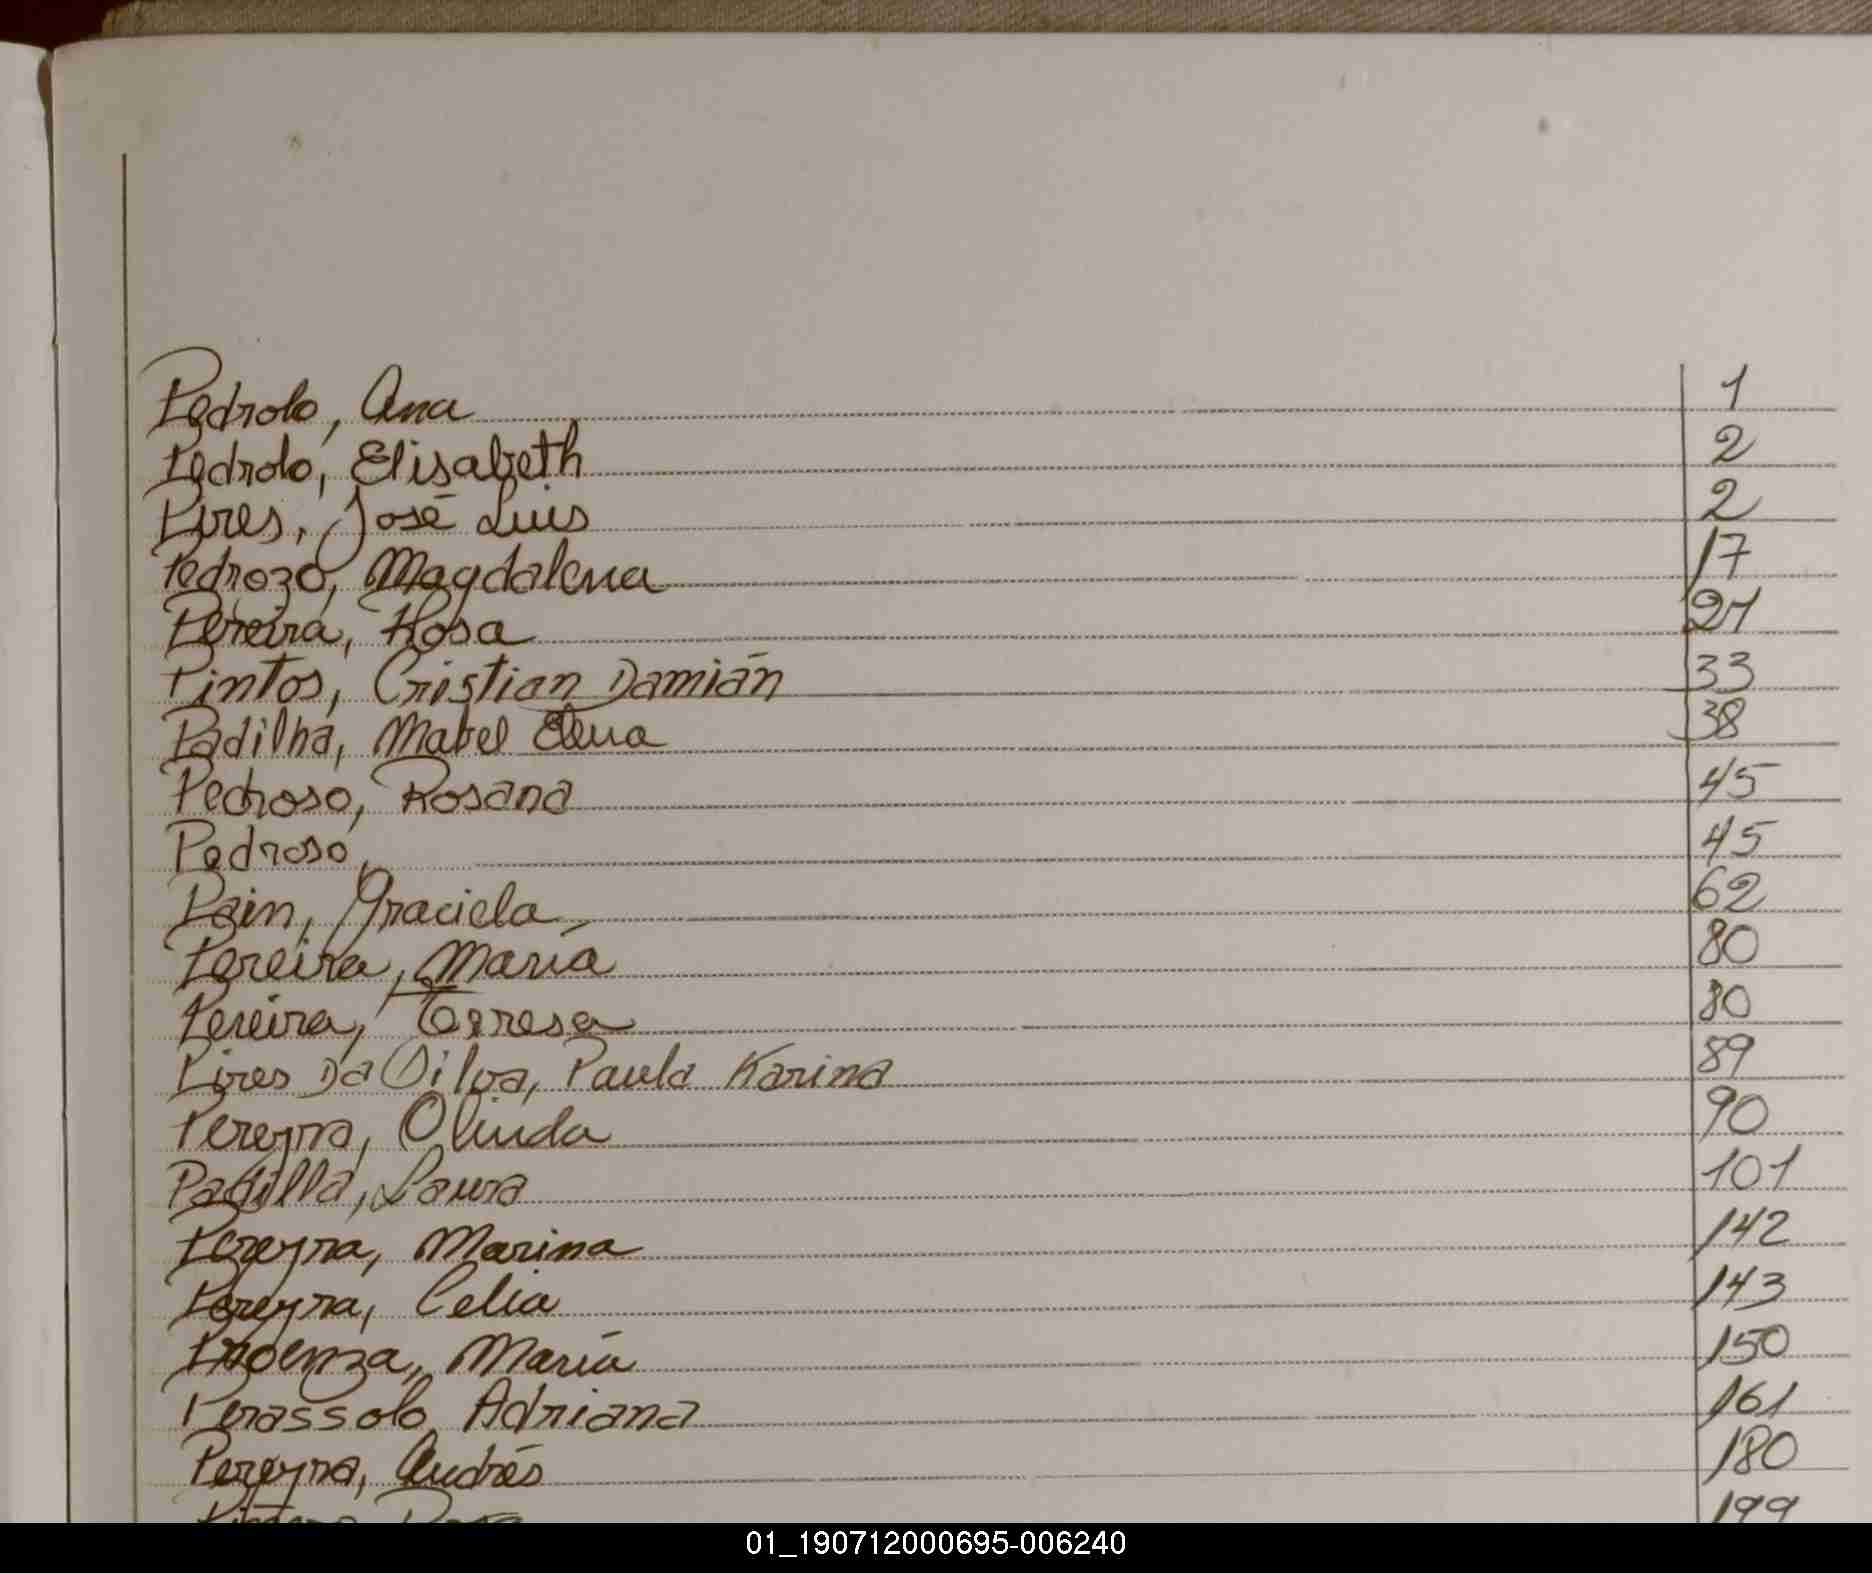 Pedrolo, Ana 1
Pedrolo, Elisabeth 2
Pires, José Luis 2
Pedrozo, Magdalena 17
Pereira, Rosa 21
Pintos, Cristian Damián 33
Padilha, Mabel Elena 38
Pedroso, Rosana 45
Pedroso, 45
Pain, Graciela 62
Pereira, María 80
Pereira, Teresa 80
Pires Da Silva, Paula Karina 89
Pereyra, Olinda 90
Padilla, Laura 101
Pereyra, Marina 142
Pereyra, Celia 143
María 150
Perassolo Adriana 161
Pereyra, Andrés 180
199
01_190712000695-006240